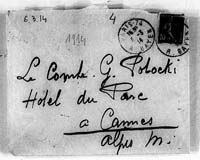 6.3.14
4
1914
Le Comte G. Potocki
Hôtel du Parc
à Cannes
Alpes M.